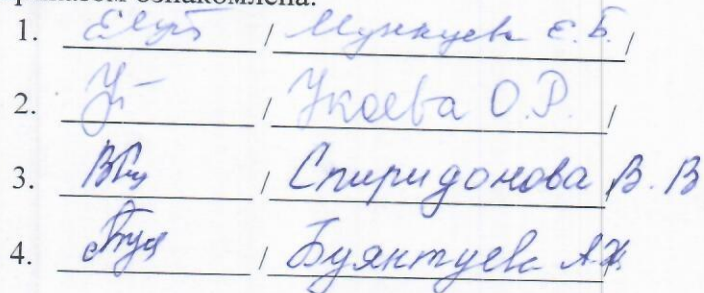 ознакомлена:
1. / Мункуева Е.Б. /
2. / Укоева О.Р. /
3. / Спиридонова В.В
4. / Буянтуева А.Ж.